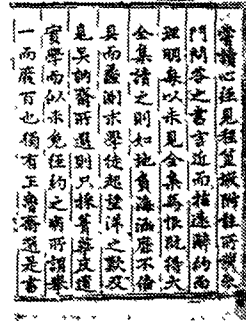 嘗讀心經見程篁墩附註所引朱
門問答之書言近而指遠辭約而
理明每以未見全集爲恨旣得大
全集讀之則如地負海涵靡不備
具而蠡測求學徒起望洋之歎及
見吳訥齋所選則只採菁華反遺
實學而似未免徑約之病所謂擧
一而廢百也獨有王魯齋選是書